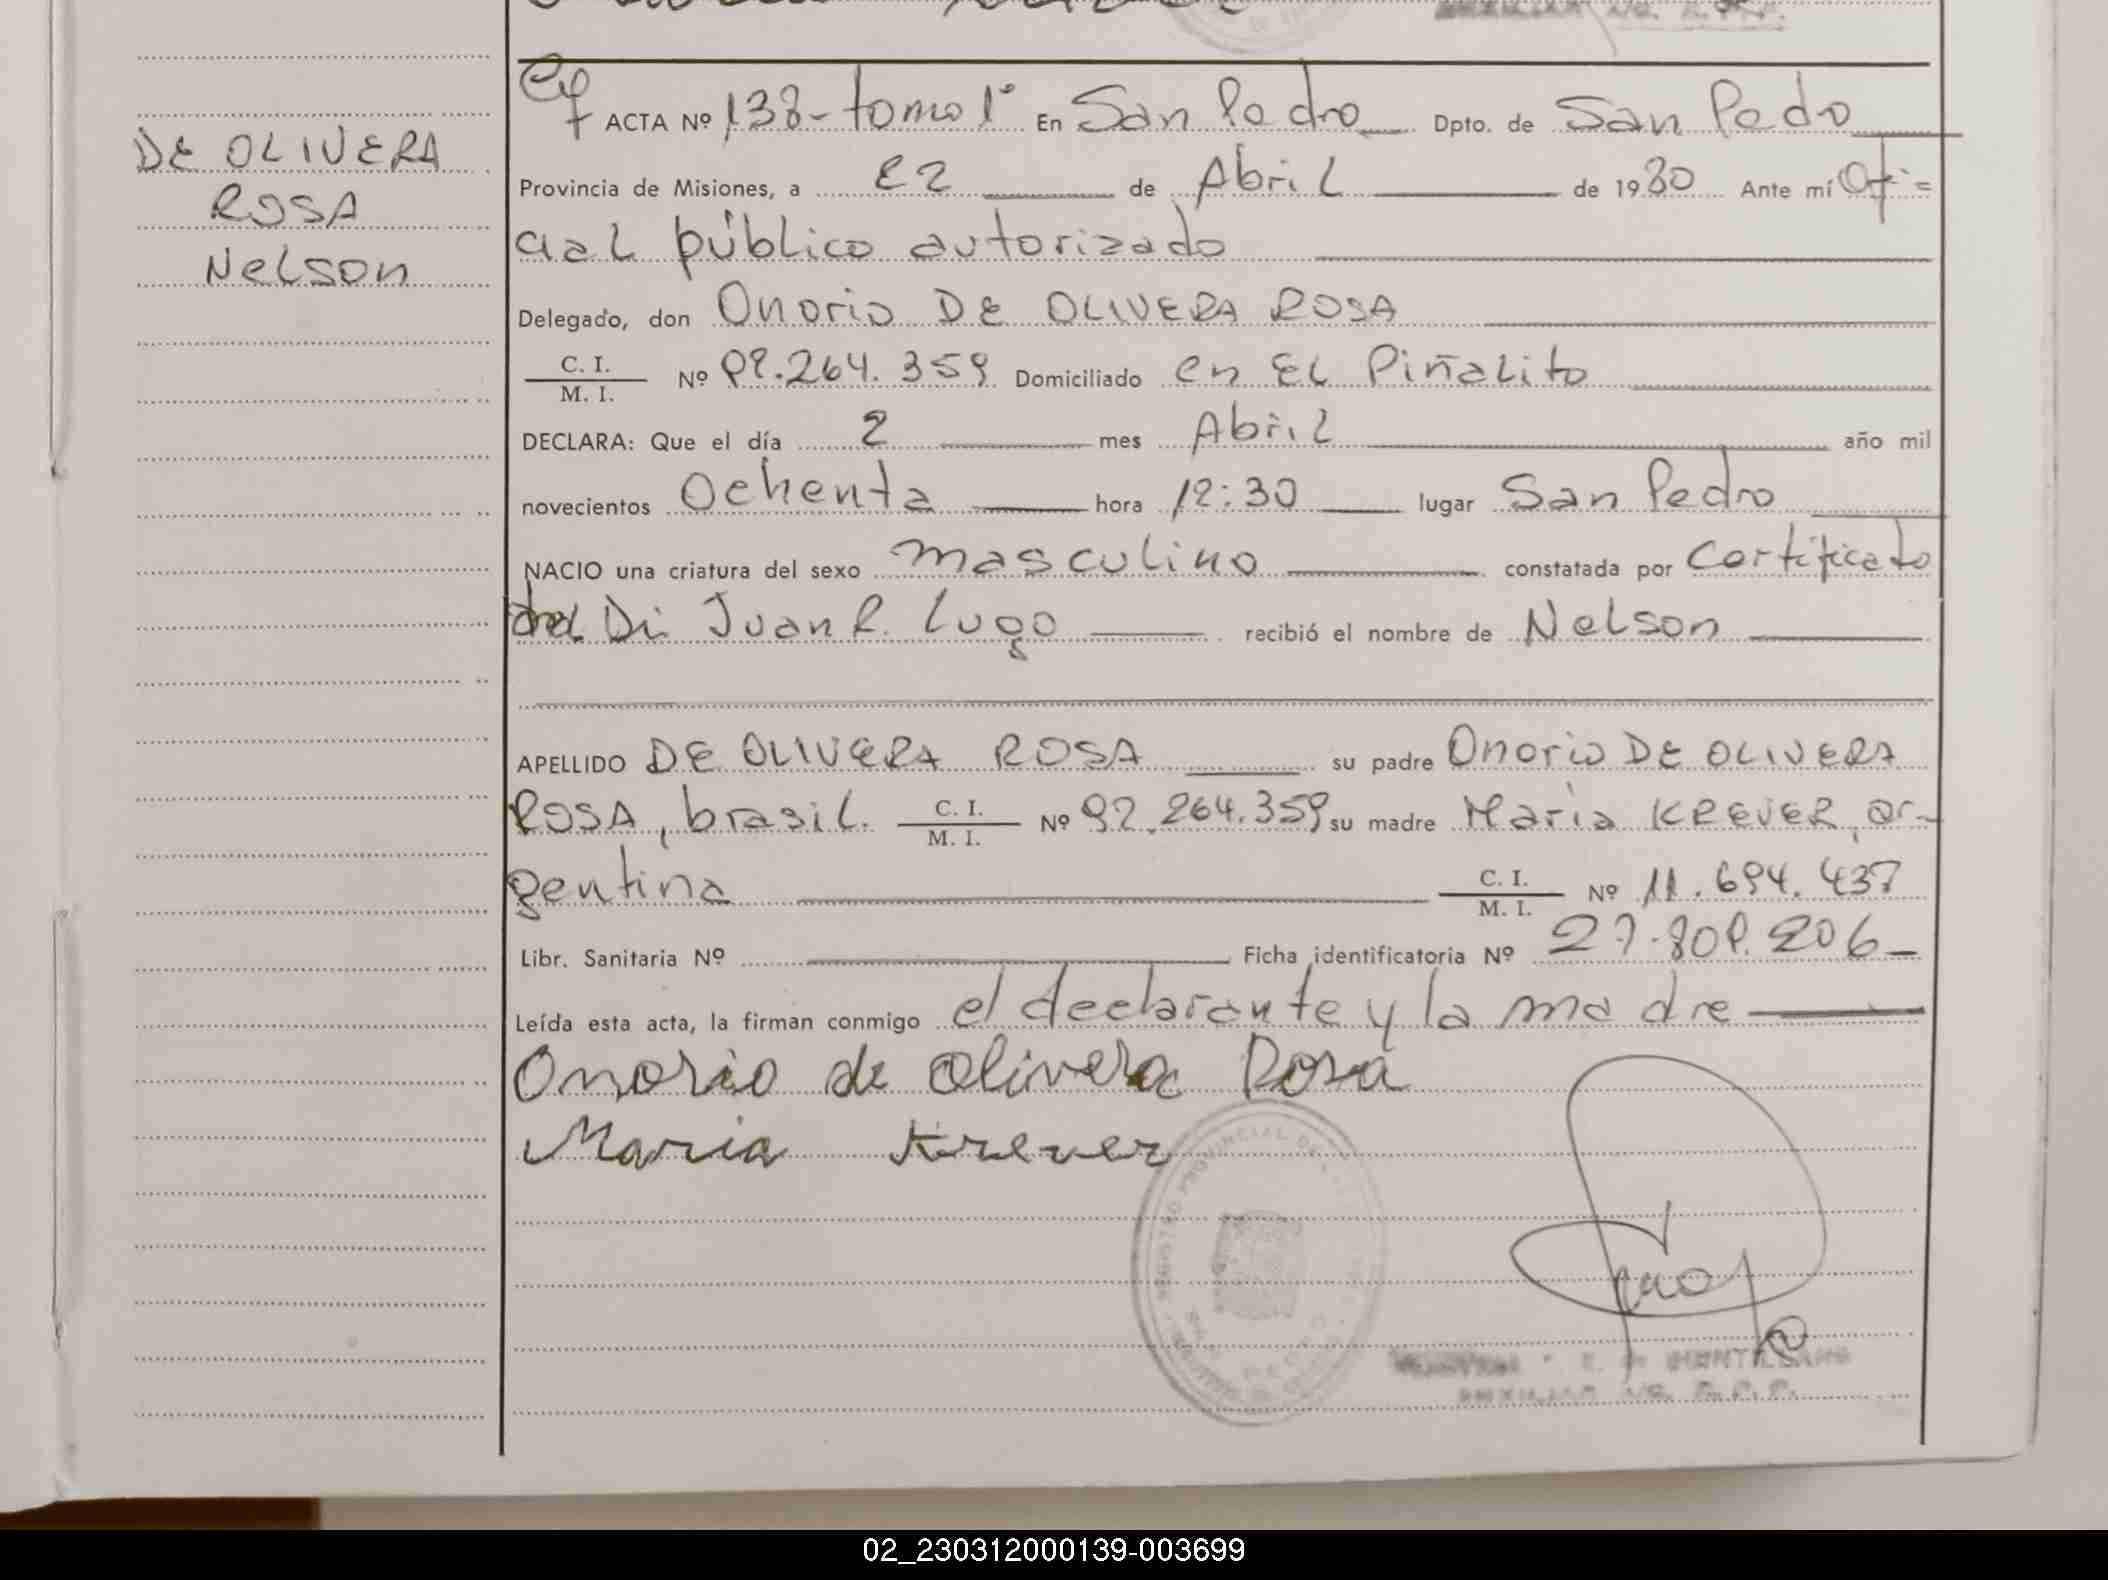 DE OLIVERA
ROSA
Nelson
ACTA Nº 138- tomo 1º En San Pedro Dpto. de San Pedro
Provincia de Misiones, a 22 de Abril de 1980 Ante mí Ofi=
cial público autorizado
Delegado, don Onorio DE OLIVERA ROSA
C. I.
M. I. Nº 92.264.359 Domiciliado en EL Piñalito
DECLARA: Que el día 2 mes Abril año mil
novecientos Ochenta hora 12:30 lugar San Pedro
NACIO una criatura del sexo masculino constatada por Certificado
del Dr. Juan R. Lugo recibió el nombre de Nelson
APELLIDO DE OLIVERA ROSA su padre Onorio DE OLIVERA
ROSA, brasil. C. I.
M. I. Nº 92.264.359 su madre Maria KREVER, ar-
gentina C. I.
M. I. Nº 11.694.437
Libr. Sanitaria Nº Ficha identificatoria Nº 27.808.206-
Leída esta acta, la firman conmigo el declarante y la madre
Onorio de Olivera Rosa
Maria Krever
REGISTRO PROVINCIAL DE
SAN PEDRO
AUXILIAR A/C. R. P. P.
02_230312000139-003699